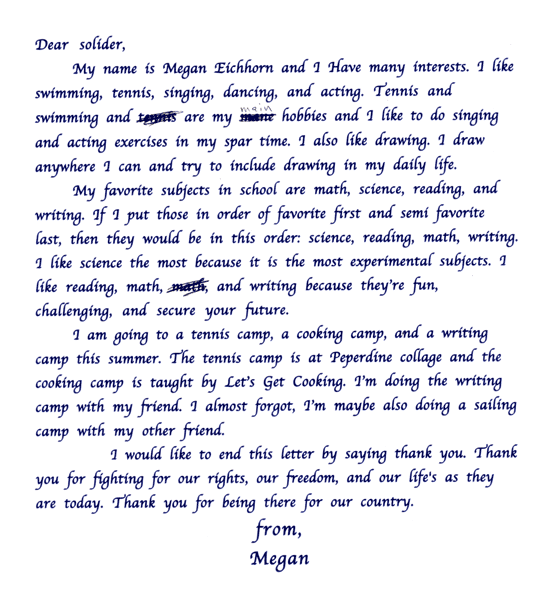 Dear solider,
My name is Megan Eichhorn and I Have many interests. I like
swimming, tennis, singing, dancing, and acting. Tennis and
main
swimming and tennis are my mane hobbies and I like to do singing
and acting exercises in my spar time. I also like drawing. I draw
anywhere I can and try to include drawing in my daily life.
My favorite subjects in school are math, science, reading, and
writing. If I put those in order of favorite first and semi favorite
last, then they would be in this order: science, reading, math, writing.
I like science the most because it is the most experimental subjects. I
like reading, math, math, and writing because they're fun,
challenging, and secure your future.
I am going to a tennis camp, a cooking camp, and a writing
camp this summer. The tennis camp is at Peperdine collage and the
cooking camp is taught by Let's Get Cooking. I'm doing the writing
camp with my friend. I almost forgot, I'm maybe also doing a sailing
camp with my other friend.
I would like to end this letter by saying thank you. Thank
you for fighting for our rights, our freedom, and our life's as they
are today. Thank you for being there for our country.
from,
Megan